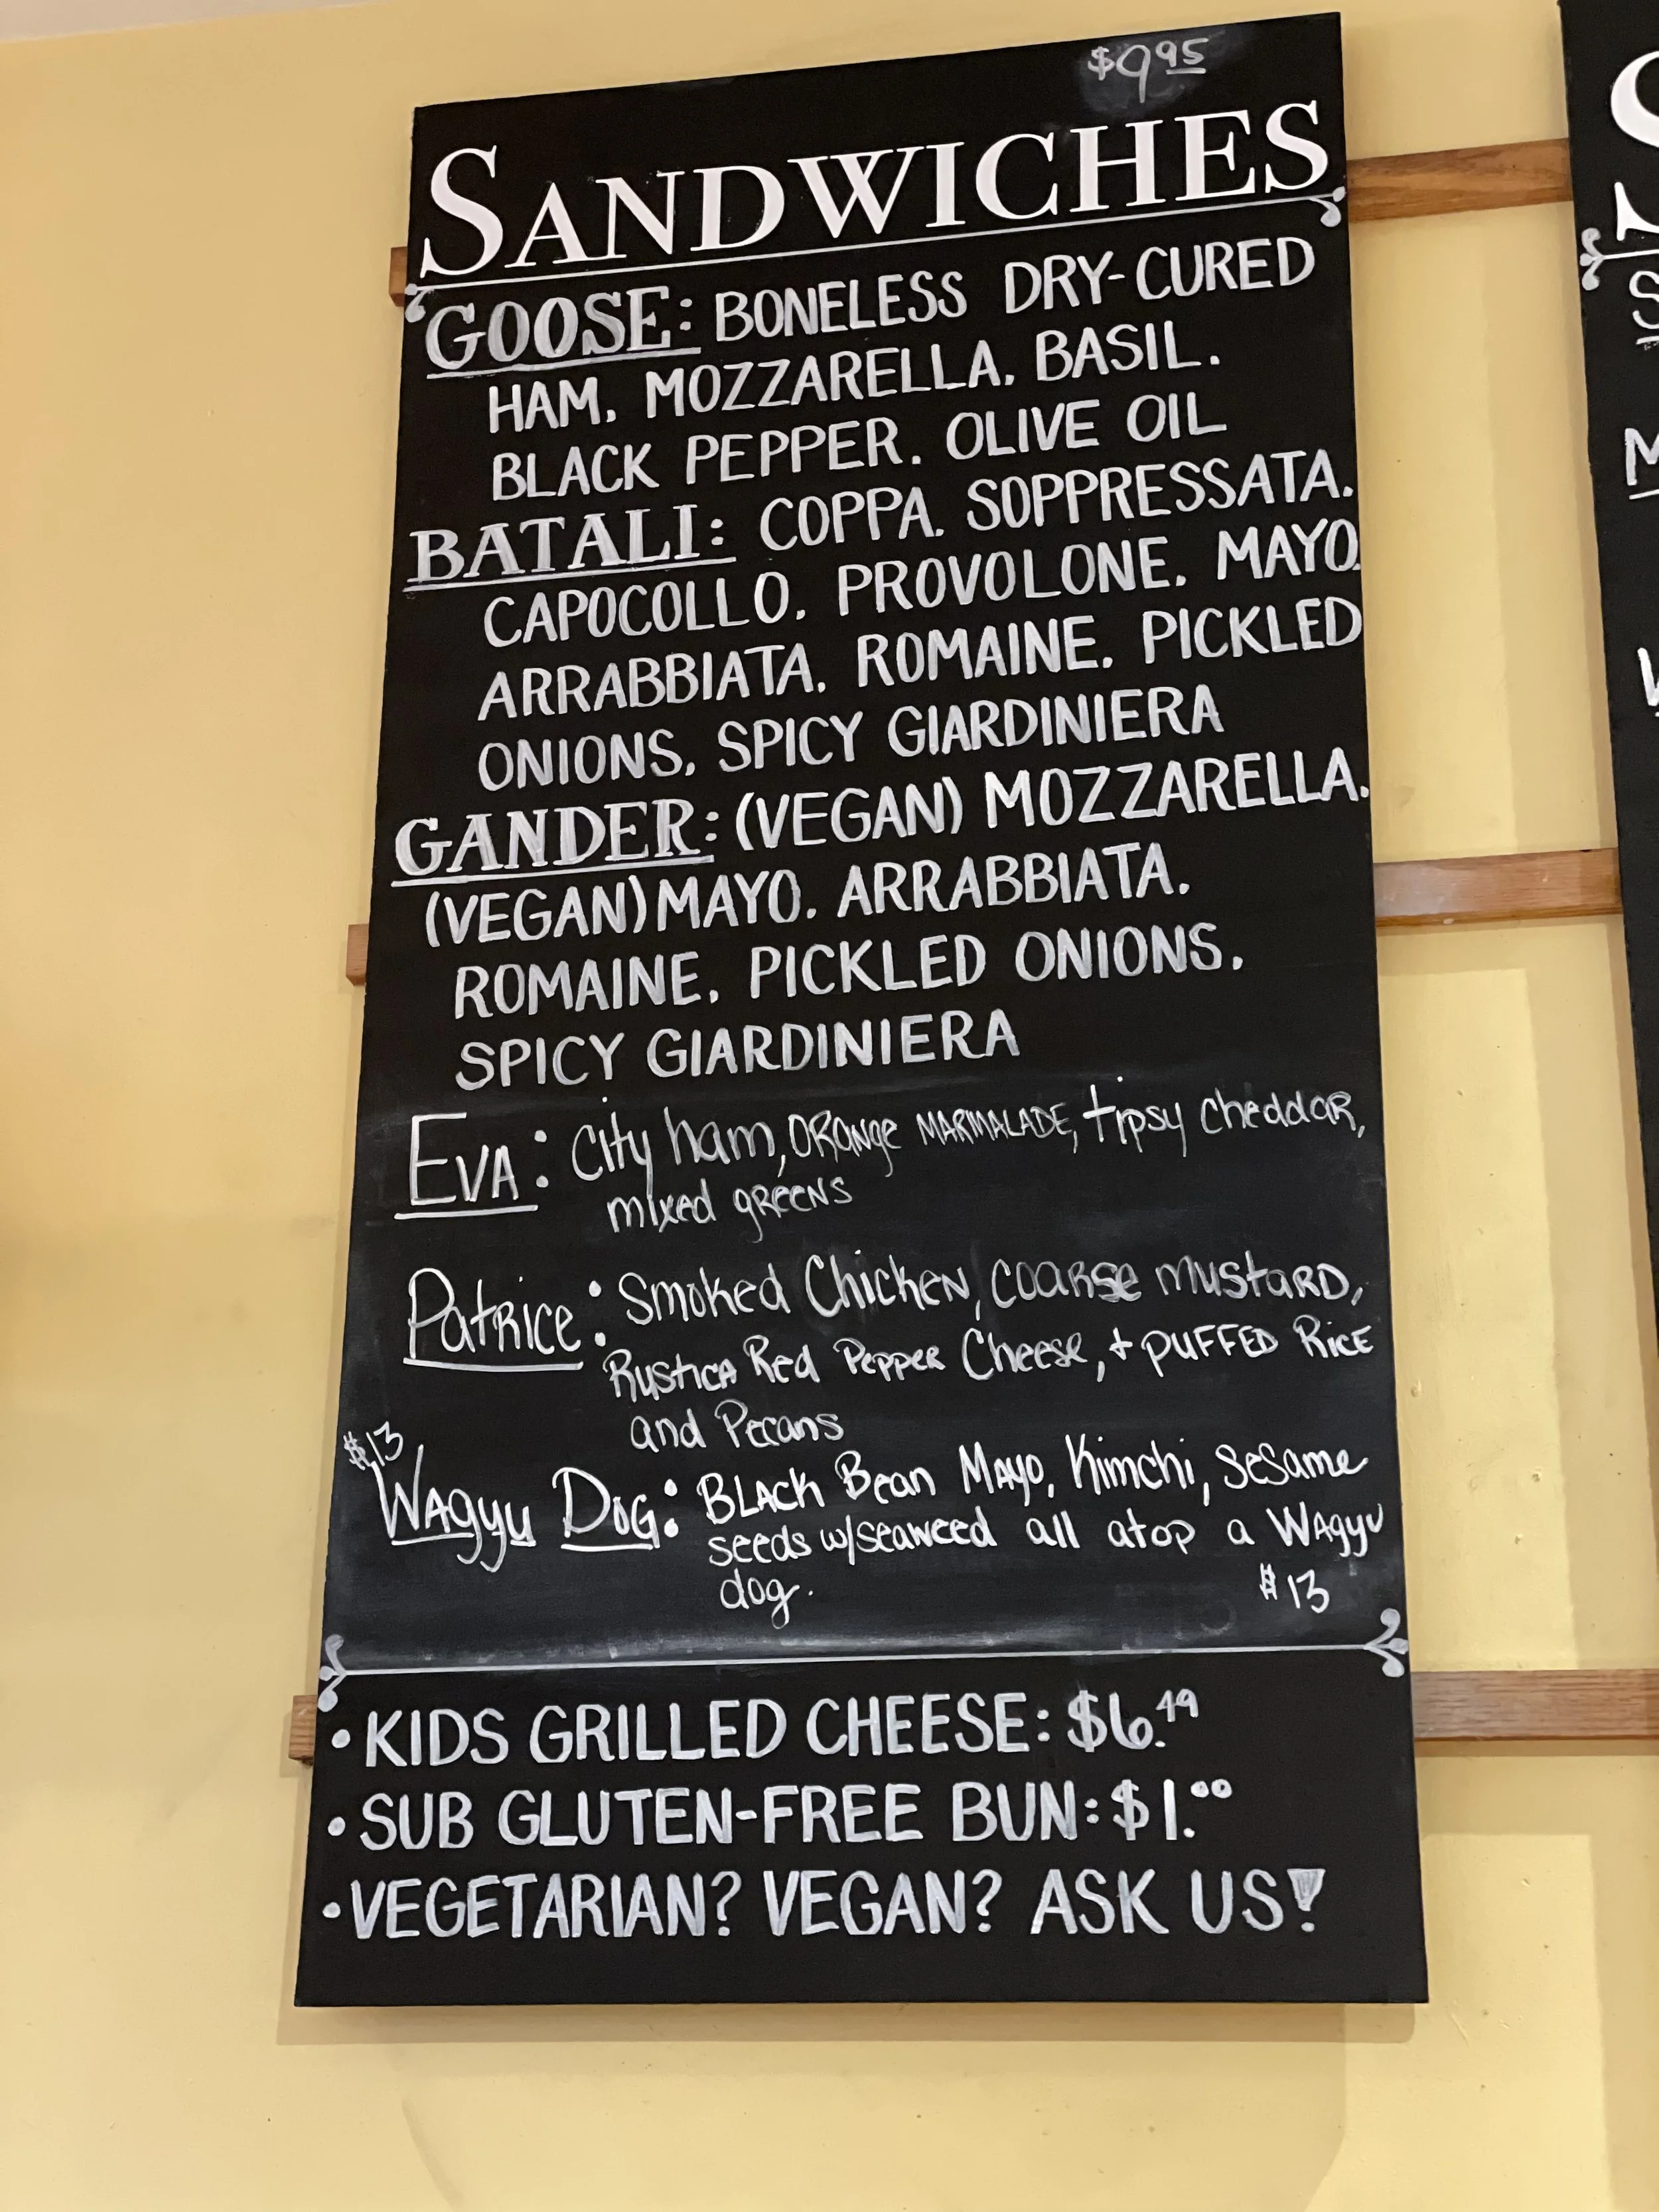 $9.95
SANDWICHES
GOOSE: BONELESS DRY-CURED
HAM, MOZZARELLA, BASIL,
BLACK PEPPER, OLIVE OIL
BATALI: COPPA, SOPPRESSATA,
CAPOCOLLO, PROVOLONE, MAYO,
ARRABBIATA, ROMAINE, PICKLED
ONIONS, SPICY GIARDINIERA
GANDER: (VEGAN) MOZZARELLA,
(VEGAN) MAYO, ARRABBIATA,
ROMAINE, PICKLED ONIONS,
SPICY GIARDINIERA
EVA: City ham, ORange MARMALADE, tipsy cheddar,
mixed greens
Patrice: Smoked Chicken, coarse mustard,
Rustica Red Pepper Cheese, + PUFFED Rice
and Pecans
$13
Wagyu Dog: Black Bean Mayo, Kimchi, sesame
seeds w/seaweed all atop a Wagyu
dog.
$13
• KIDS GRILLED CHEESE: $6.49
• SUB GLUTEN-FREE BUN: $1.00
• VEGETARIAN? VEGAN? ASK US!